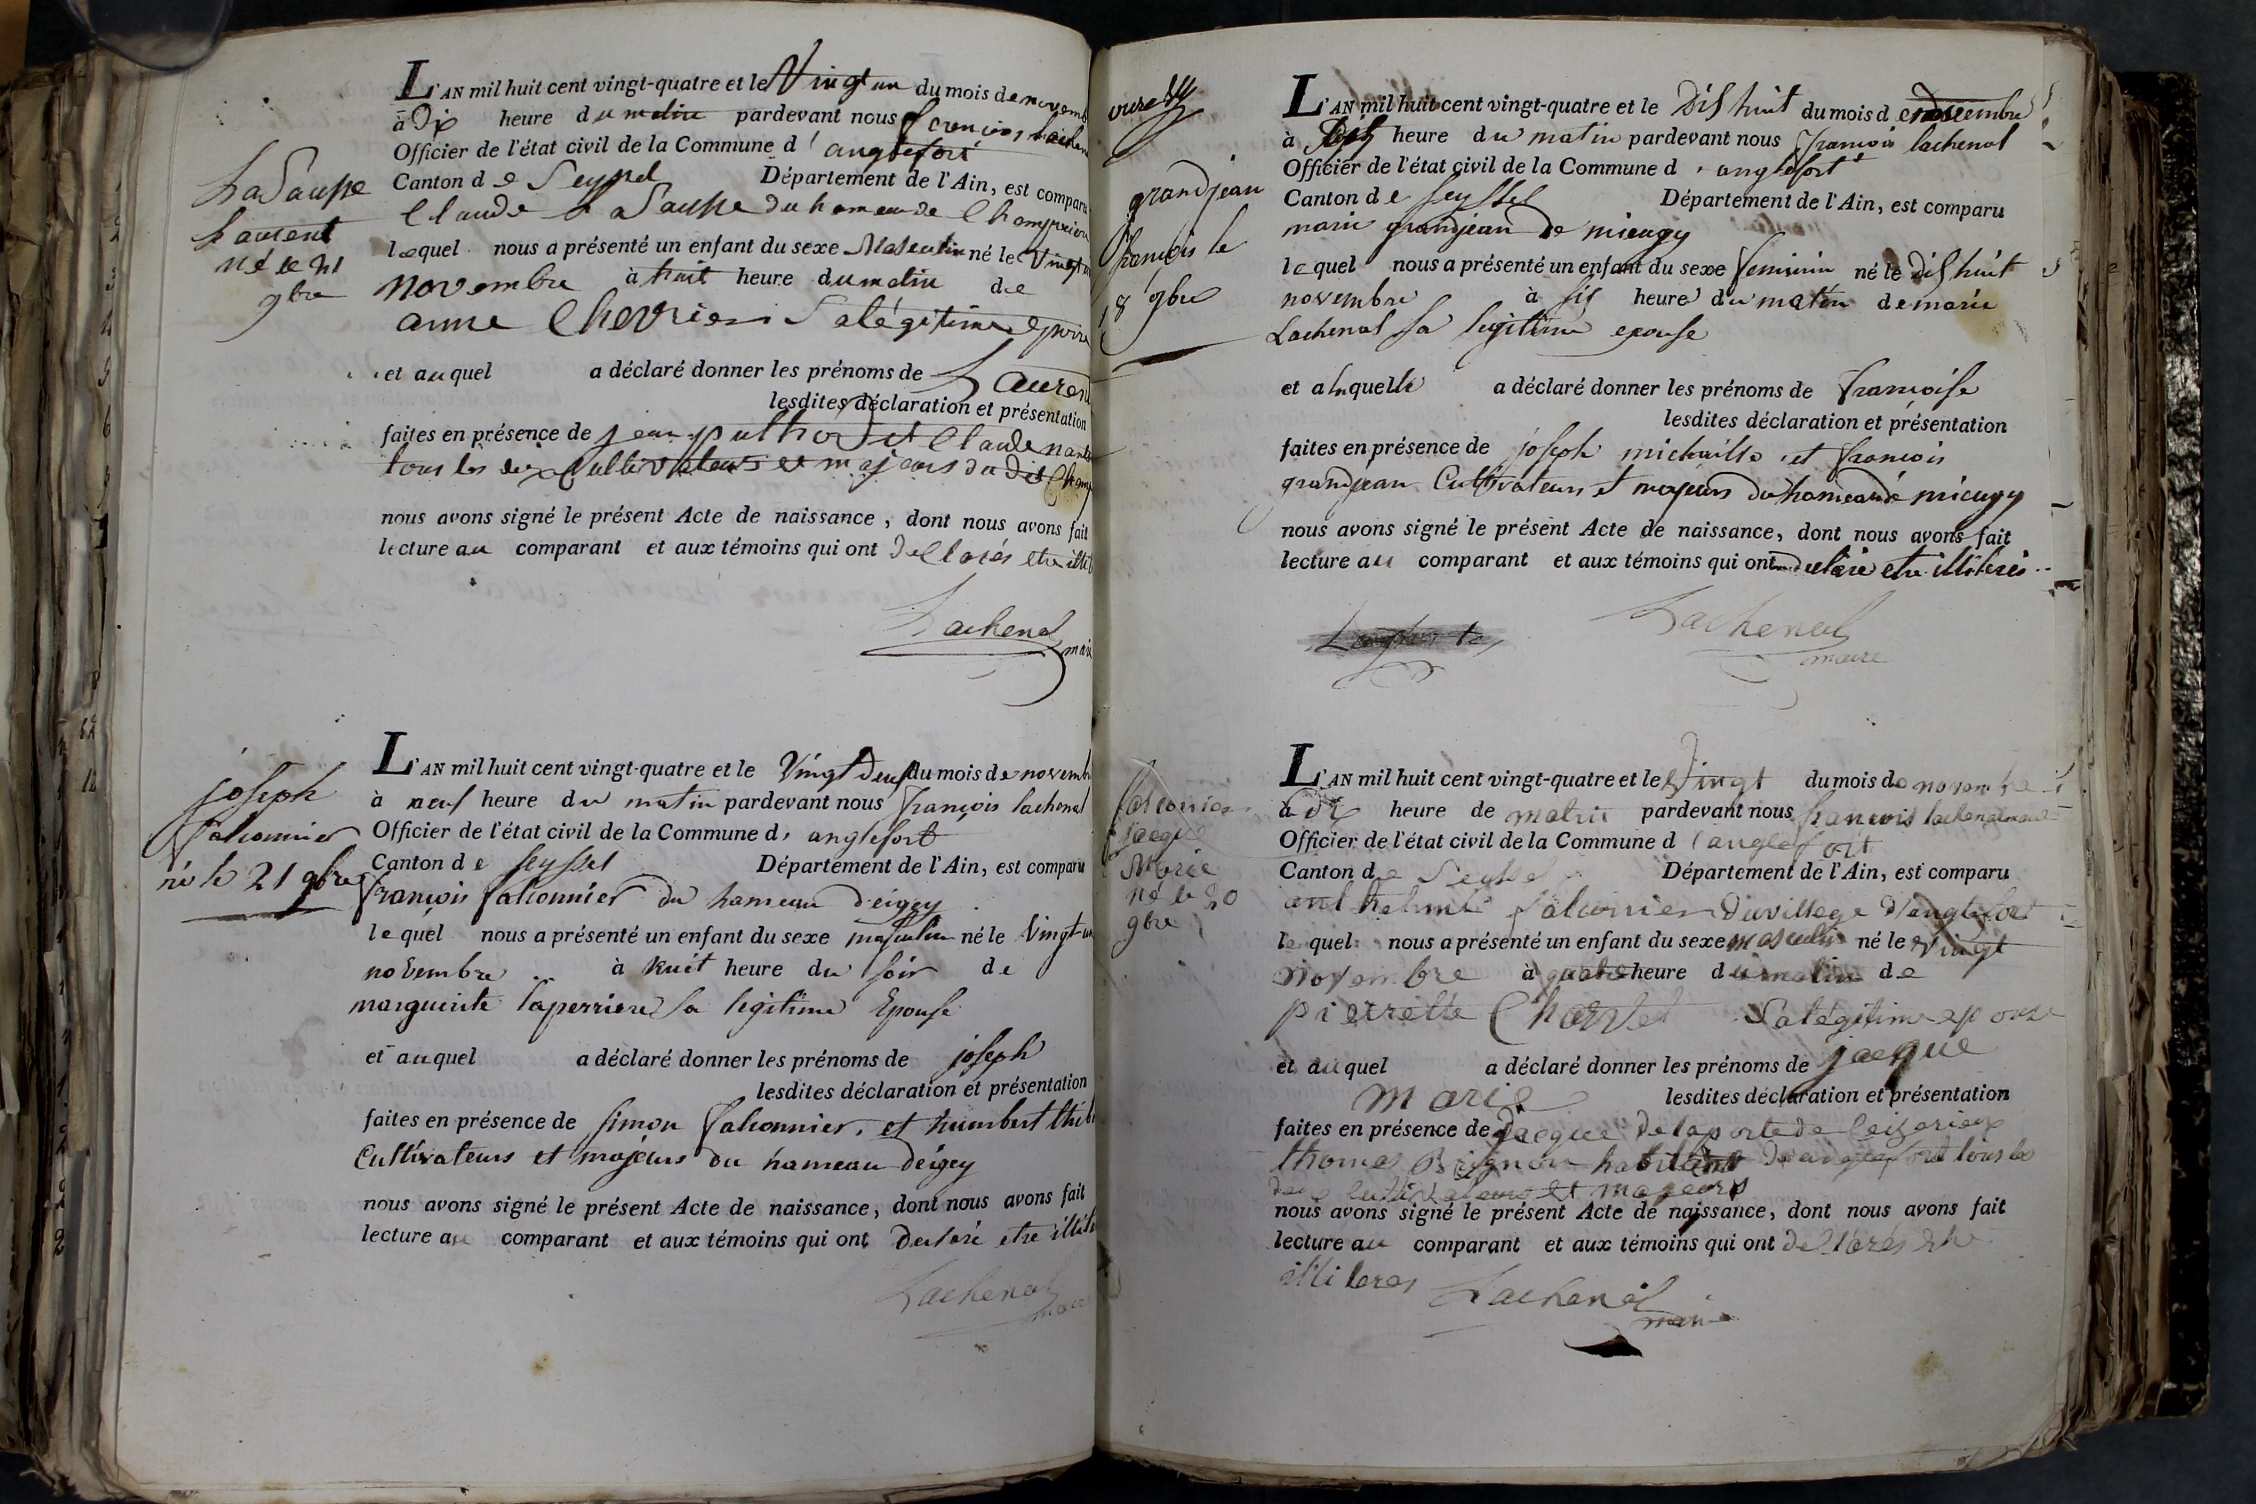 LaSausse
Laurent
né le 21
9bre
L'AN mil huit cent vingt-quatre et le Vingt un du mois de novemb
à Dix heure du matin pardevant nous francois Lachen
Officier de l'état civil de la Commune d'anglefort
Canton de Seyssel Département de l'Ain, est comparu
Claude LaSausse du hameau de Champrion
lequel nous a présenté un enfant du sexe Masculin né le Vingt un
novembre à huit heure du matin de
anne Chevrier Sa légitime epouse
et auquel a déclaré donner les prénoms de Laurent
lesdites déclaration et présentation
faites en présence de jean et Claude
tous les deux Cultivateurs et majeurs du dit Champ
nous avons signé le présent Acte de naissance, dont nous avons fait
lecture au comparant et aux témoins qui ont declarés etre illit
Lachenal
maire
joseph
falconnier
né le 21 9bre
L'AN mil huit cent vingt-quatre et le Vingt deux du mois de novemb
à neuf heure du matin pardevant nous françois lachenal
Officier de l'état civil de la Commune d'anglefort
Canton de seyssel Département de l'Ain, est comparu
françois falconnier du hameau d'eigey
lequel nous a présenté un enfant du sexe masculin né le Vingt-un
novembre à huit heure du soir de
marguerite laperriere sa legitime Epouse
et auquel a déclaré donner les prénoms de joseph
lesdites déclaration et présentation
faites en présence de simon falconnier, et humbert
Cultivateurs et majeurs du hameau d'eigey
nous avons signé le présent Acte de naissance, dont nous avons fait
lecture au comparant et aux témoins qui ont declaré etre illité
Lachenal
maire
grandjean
françois le
18 9bre
L'AN mil huit cent vingt-quatre et le dis huit du mois de novembre
à heure du matin pardevant nous françois lachenal
Officier de l'état civil de la Commune d'anglefort
Canton de seyssel Département de l'Ain, est comparu
marie grandjean de mieugy
lequel nous a présenté un enfant du sexe feminin né le dis huit
novembre à six heure du matin de marie
Lachenal sa legitime epouse
et alaquelle a déclaré donner les prénoms de françoise
lesdites déclaration et présentation
faites en présence de joseph michaille et francois
grandjean Cultivateurs et majeurs du hameau de mieugy
nous avons signé le présent Acte de naissance, dont nous avons fait
lecture au comparant et aux témoins qui ont declaré etre illiterés
Lachenal
maire
falconier
jacque
Marie
né le 20
9bre
L'AN mil huit cent vingt-quatre et le Vingt du mois de novembre
à dix heure de matin pardevant nous francois lachenal maire
Officier de l'état civil de la Commune d'anglefort
Canton de Seyssel Département de l'Ain, est comparu
anthelme falconier du village d'anglefort
lequel nous a présenté un enfant du sexe masculin né le vingt
novembre à quatre heure du matin de
pierrette Charvet Sa légitime epouse
et auquel a déclaré donner les prénoms de jacque
marie lesdites déclaration et présentation
faites en présence de jacque delaporte de Ceizerieux
thomas habitant d'anglefort tous les
deux cultivateurs et majeurs
nous avons signé le présent Acte de naissance, dont nous avons fait
lecture au comparant et aux témoins qui ont declarés etre
illiteres Lachenal
maire